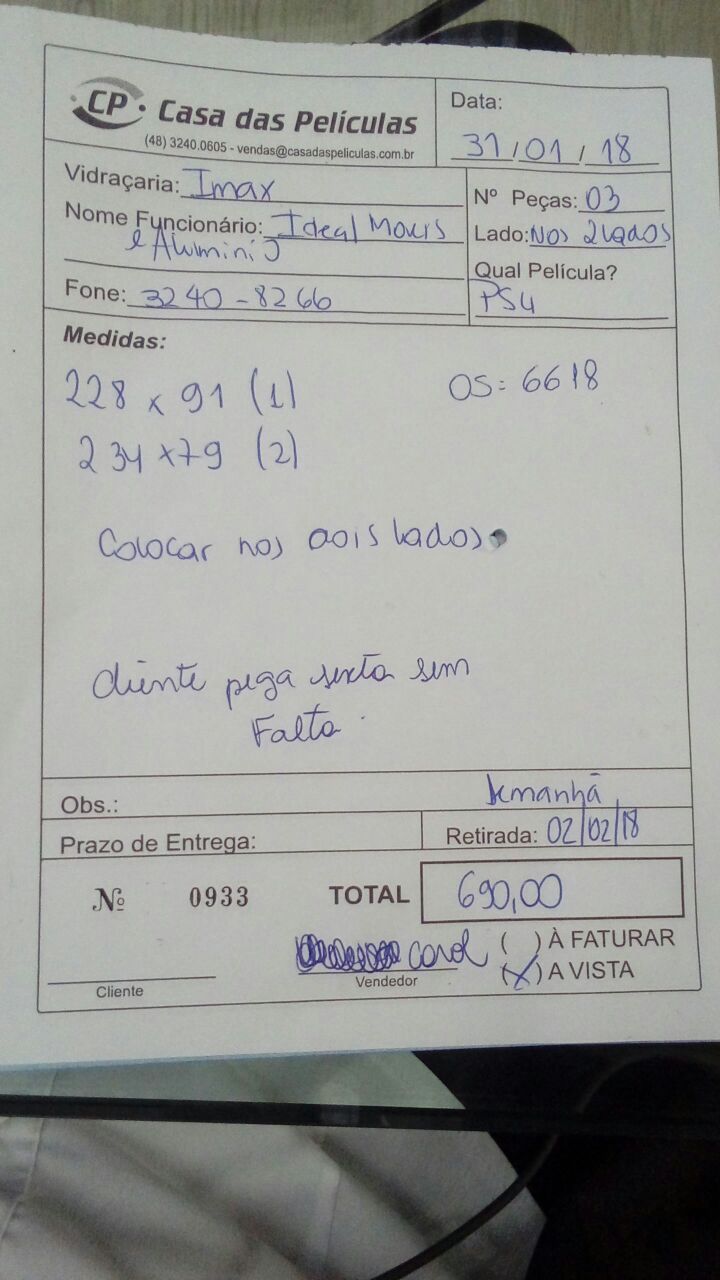 CP Casa das Películas
(48) 3240.0605 - vendas@casadaspeliculas.com.br
Data:
31/01/18
Vidraçaria: Imax
Nome Funcionário: Ideal Movis
e Alumini
Fone: 3240-8266
Nº Peças: 03
Lado: Nos 2 lados
Qual Película?
PS4
Medidas:
228 x 91 (1)
OS: 6618
234 x 79 (2)
Colocar nos dois lados
cliente pega sexta sem
Falta.
Obs.:
manhã
Prazo de Entrega:
Retirada: 02/02/18
Nº 0933
TOTAL 690,00
Carol
( ) À FATURAR
(X) A VISTA
Cliente
Vendedor